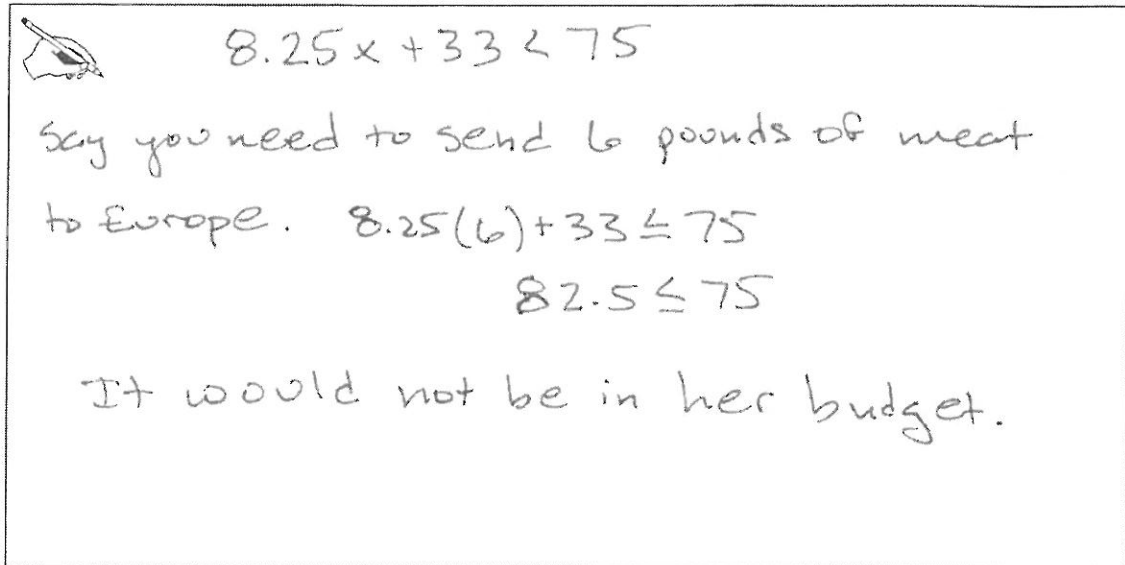 8.25x + 33 < 75
Say you need to send 6 pounds of meat
to Europe. 8.25(6) + 33 ≤ 75
82.5 ≤ 75
It would not be in her budget.